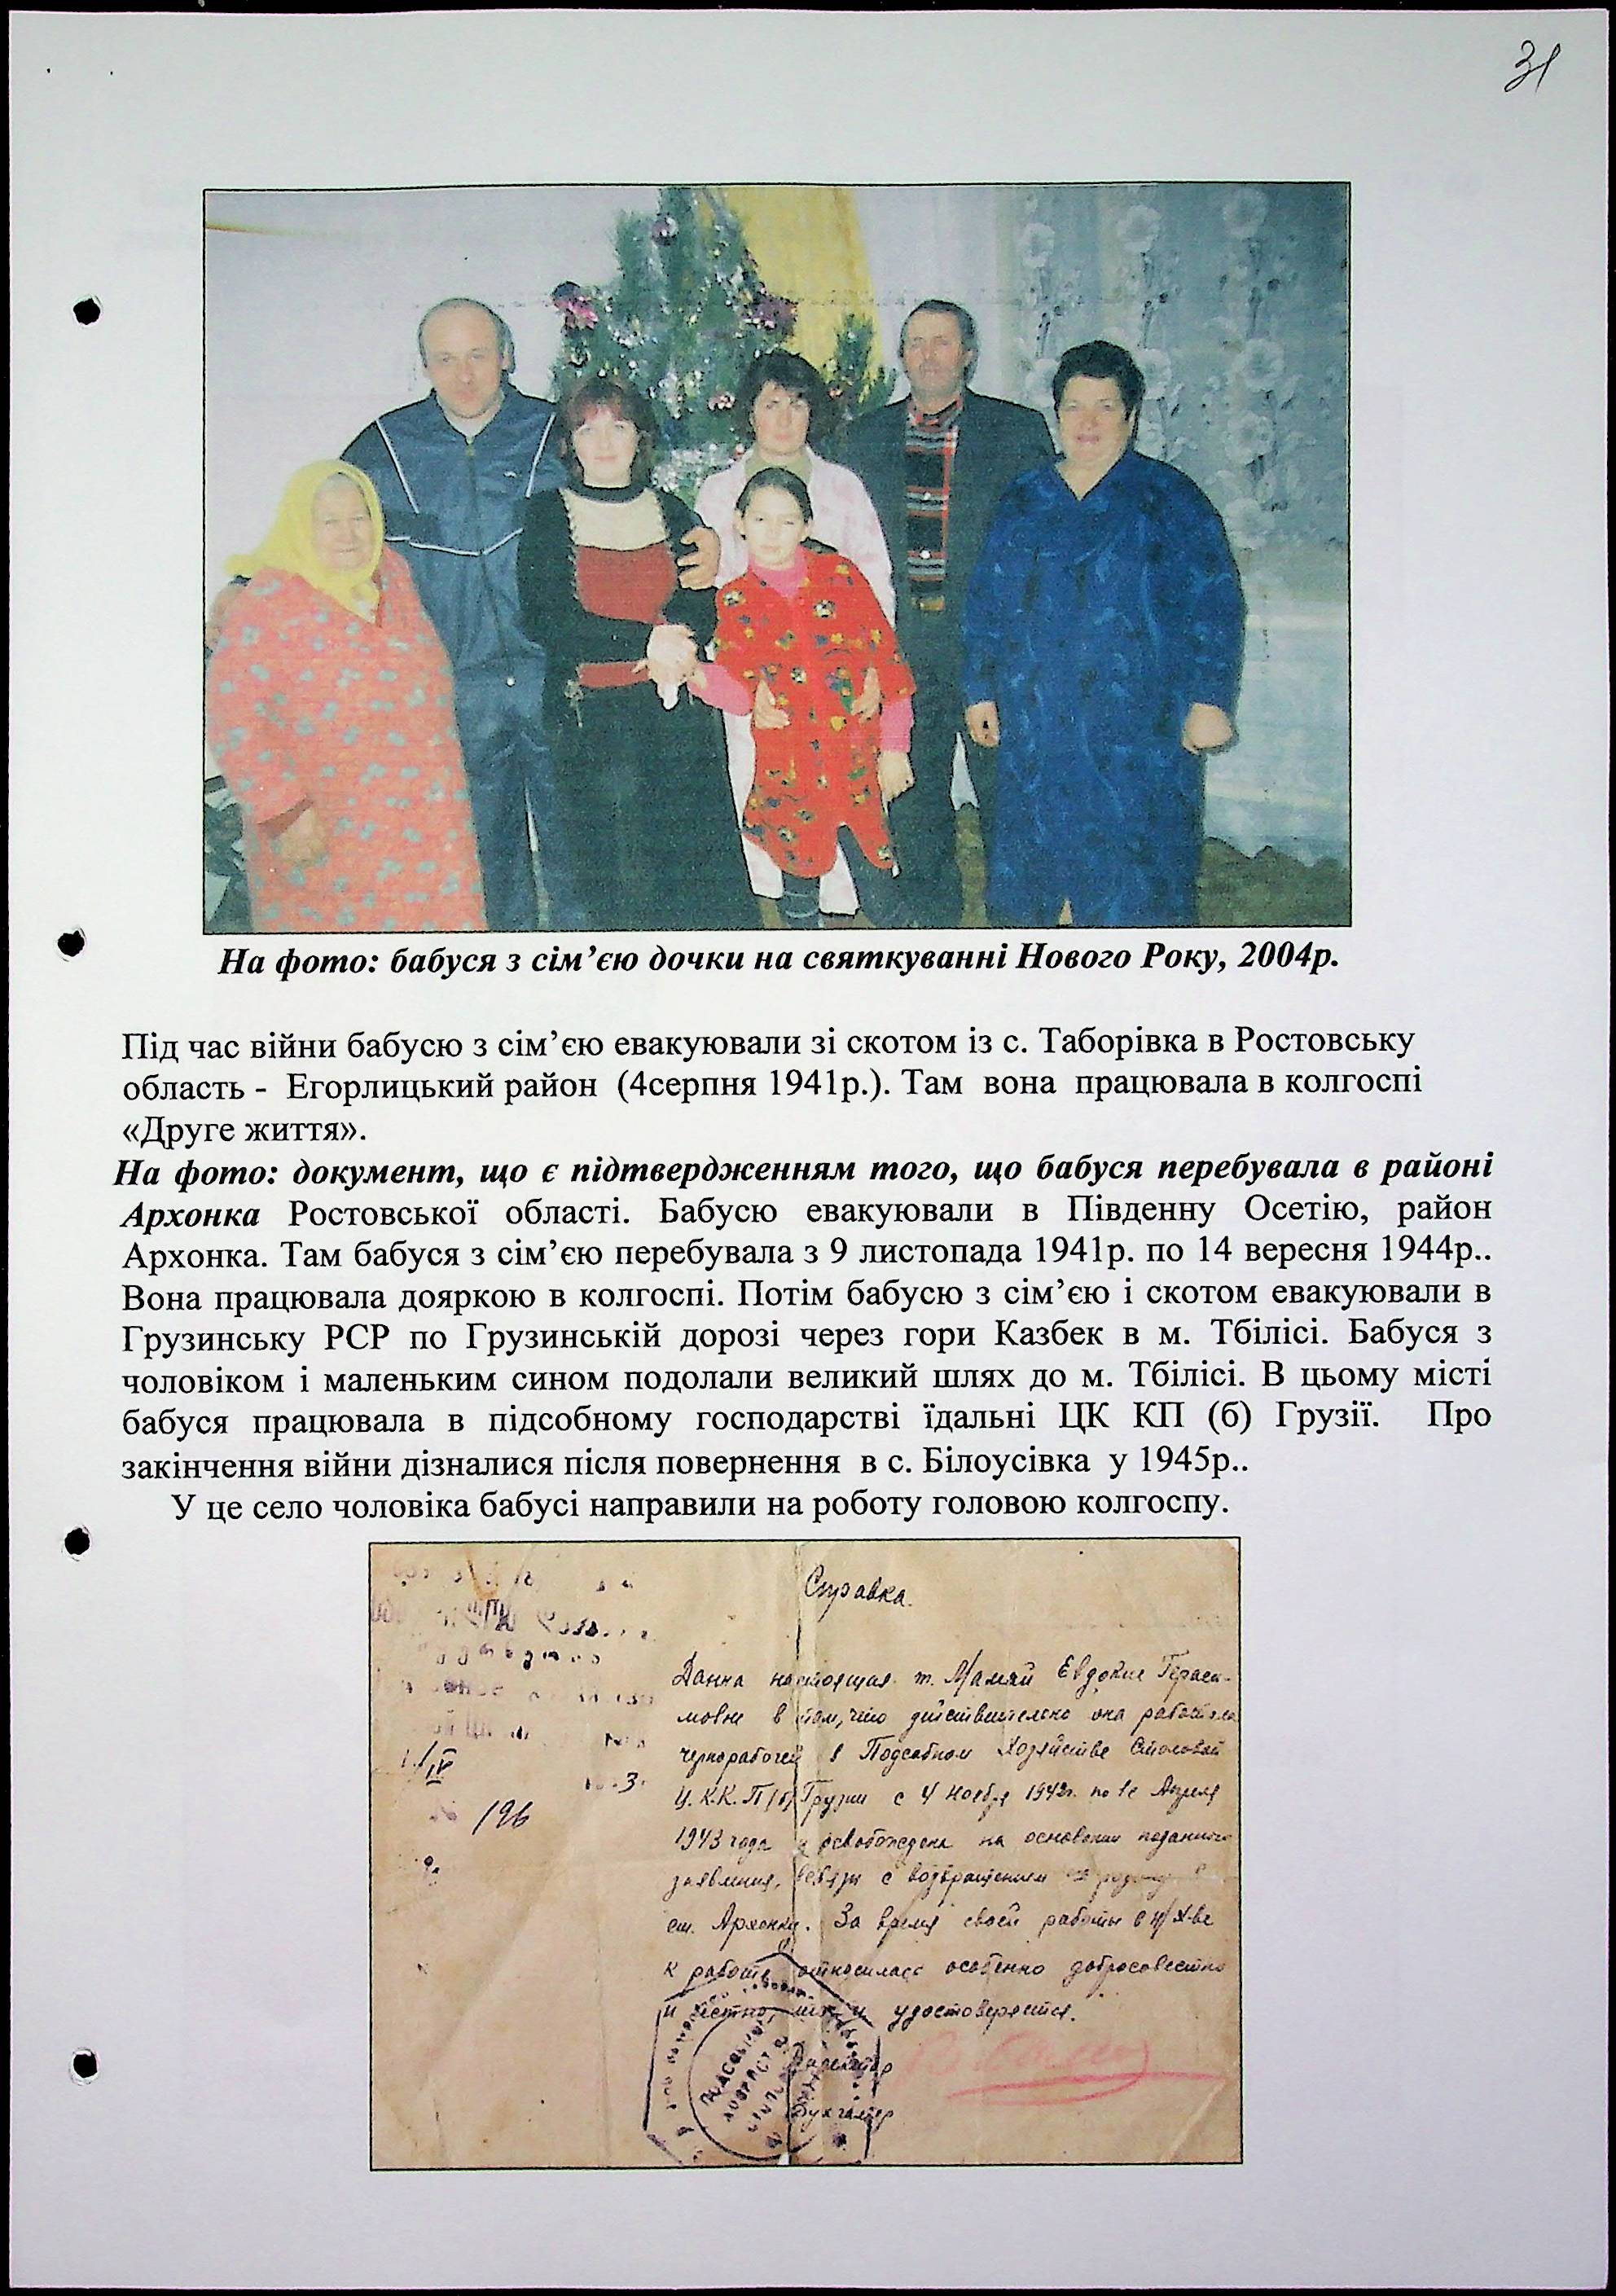 31
На фото: бабуся з сім’єю дочки на святкуванні Нового Року, 2004р.
Під час війни бабусю з сім’єю евакуювали зі скотом із с. Таборівка в Ростовську
область - Егорлицький район (4серпня 1941р.). Там вона працювала в колгоспі
«Друге життя».
На фото: документ, що є підтвердженням того, що бабуся перебувала в районі
Архонка Ростовської області. Бабусю евакуювали в Південну Осетію, район
Архонка. Там бабуся з сім’єю перебувала з 9 листопада 1941р. по 14 вересня 1944р..
Вона працювала дояркою в колгоспі. Потім бабусю з сім’єю і скотом евакуювали в
Грузинську РСР по Грузинській дорозі через гори Казбек в м. Тбілісі. Бабуся з
чоловіком і маленьким сином подолали великий шлях до м. Тбілісі. В цьому місті
бабуся працювала в підсобному господарстві їдальні ЦК КП (б) Грузії. Про
закінчення війни дізналися після повернення в с. Білоусівка у 1945р..
У це село чоловіка бабусі направили на роботу головою колгоспу.
Справка.
Данна настоящая т. Мамай Евдокие Гераси-
мовне в том, что действительно она работала
чернорабочей в Подсобном Хозяйстве Столовой
Ц.К.К.П/б/ Грузии с 4 Ноября 1942г. по 1е Апреля
1943 года и освобождена на основании поданного
заявления, всвязи с возвращением на родину в
ст. Архонка. За время своей работы в п/х-ве
к работе относилась особенно добросовестно
и честно, что и удостоверяется.
Директор
Бухгалтер
196
ПОДСОБНОЕ